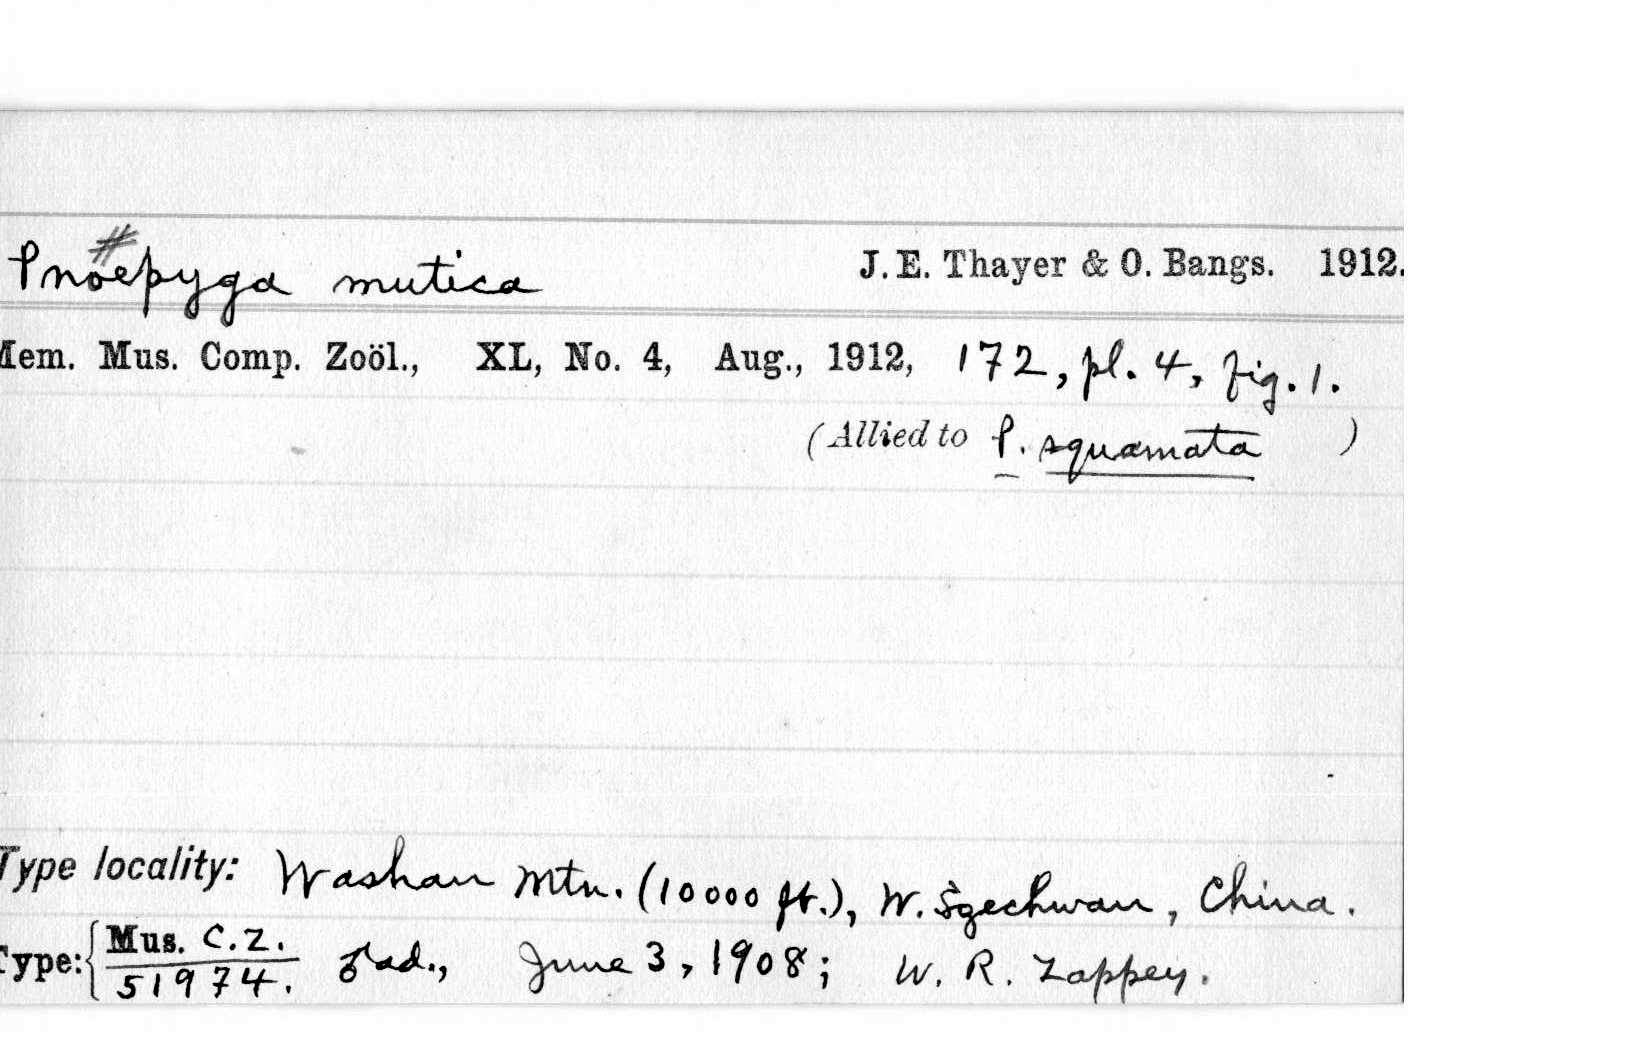 #
Pnoepyga mutica J. E. Thayer & O. Bangs. 1912.
Mem. Mus. Comp. Zoöl., XL, No. 4, Aug., 1912, 172, pl. 4, fig. 1.
(Allied to P. squamata )
Type locality: Washan Mtn. (10000 ft.), W. Szechwan, China.
Type: { Mus. C.Z. 51974. ♂ ad., June 3, 1908; W. R. Zappey.